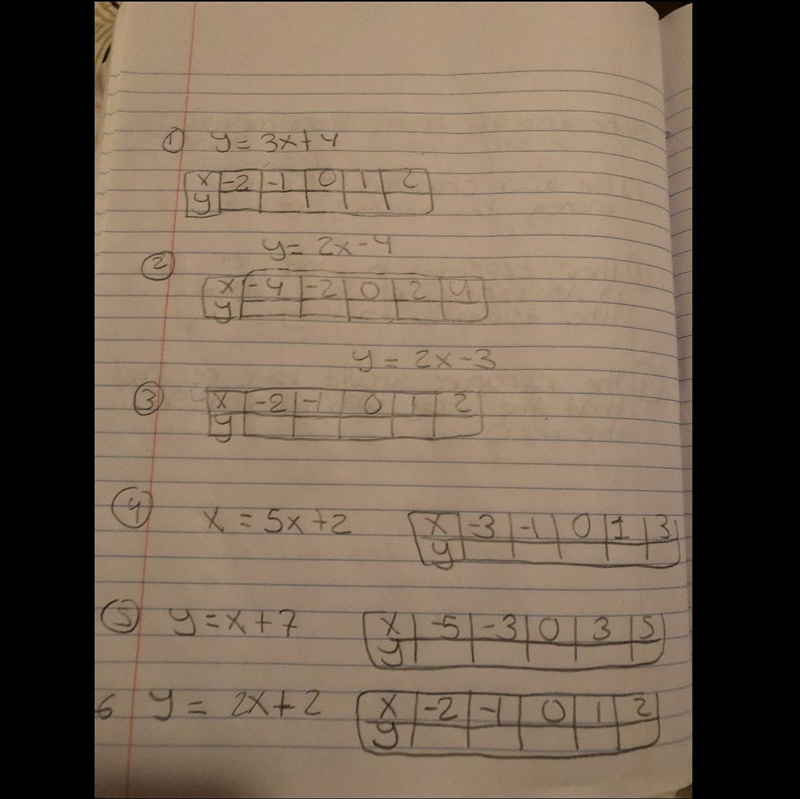 ① y = 3x+4
x -2 -1 0 1 2
y
y = 2x-4
②
x -4 -2 0 2 4
y
y = 2x-3
③
x -2 -1 0 1 2
y
④ x = 5x+2
x -3 -1 0 1 3
y
⑤ y=x+7
x -5 -3 0 3 5
y
6 y = 2x+2
x -2 -1 0 1 2
y